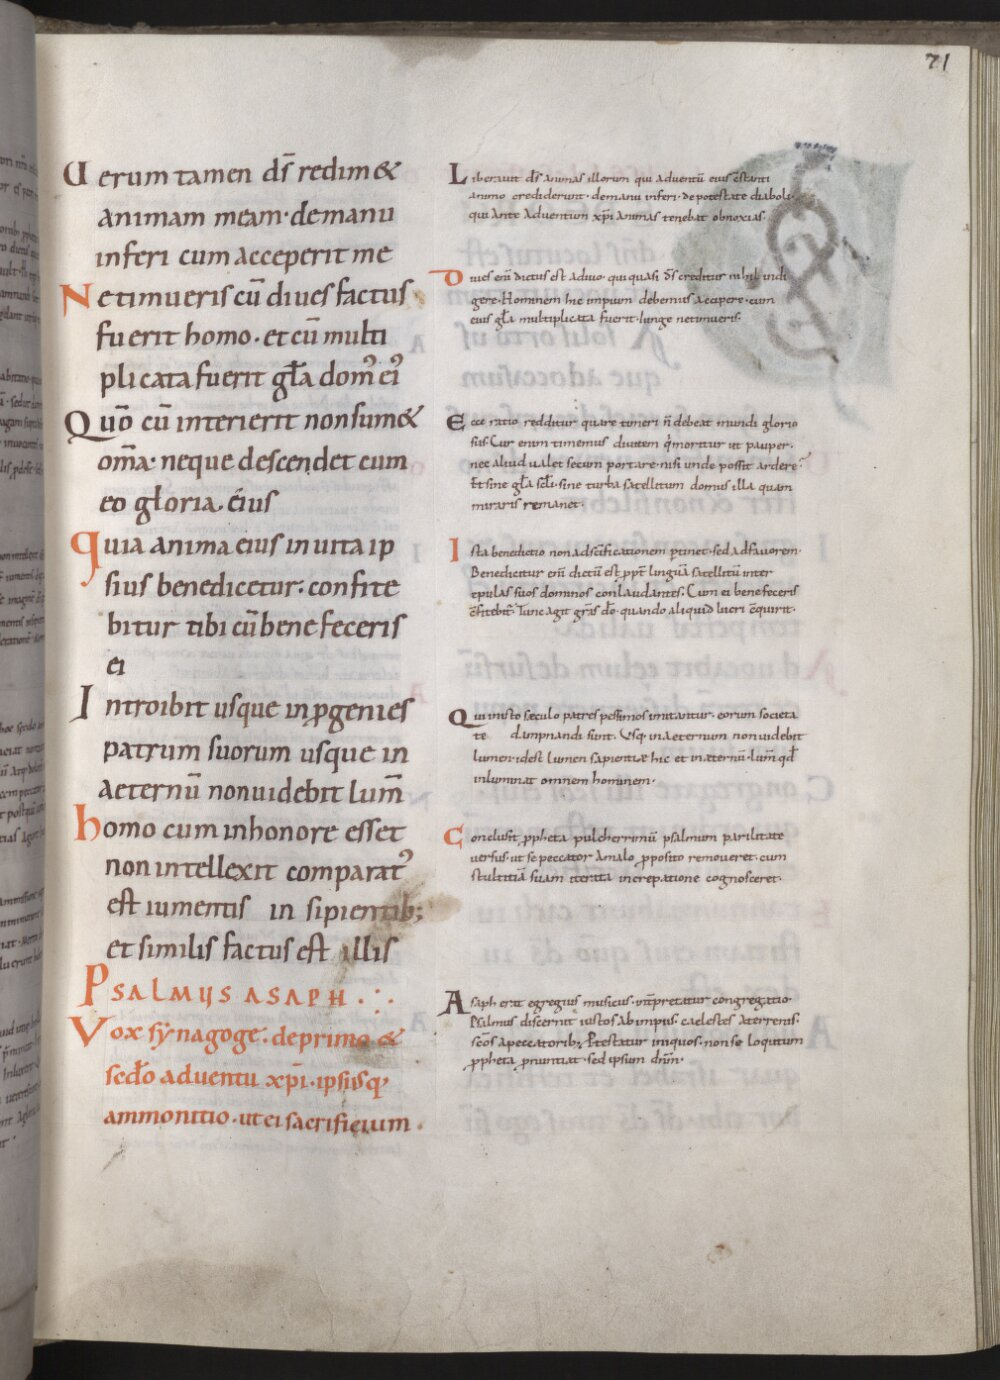 71
Uerum tamen dſ̄ redim&
animam meam· demanu
inferi cum acceperit me
Netimueris cū diues factus
fuerit homo· et cū multi
plicata fuerit gła domꝰ eiꝰ
Quō cū interierit nonſum&
om̄a· neque deſcendet cum
eo gloria· eius
Quia anima eius inuita ip
ſius benedicetur· confite
bitur tibi cū bene feceris
ei
Introibit uſque inꝓgenies
patrum ſuorum uſque in
aeternū nonuidebit lum̄
homo cum inhonore eſſet
non intellexit comparatꝰ
eſt iumentis in ſipientib;
et ſimilis factus eſt illis
PSALMUS ASAPH.
Vox ſynagoge· deprimo &
ſed̄o aduentu xp̄i· ipſiuſq,
ammonitio· ut ei sacrificium.
Liberauit dſ̄ animas illorum qui aduentū eius
animo crediderunt· demanu inferi· depoteſtate diaboli·
qui ante aduentum xp̄i animas tenebat obnoxias·
Diues eni̅ dictus eſt adiuo· qui quaſi dſ̄ creditur nihil indi
gere· Hominem hic impium debemus accipere· cum
eius gła multiplicata fuerit· lunge netimueris·
Ecce ratio redditur quare timeri n̄ debeat mundi glorio
ſus· Cur enim timemus diuitem q̇ moritur ut pauper·
nec aliud ualet ſecum portare· niſi unde poſſit ardere·
Et ſine gła ſcłi· ſine turba ſatellitum domus illa quam
miraris remanet·
Iſta benedictio non adſc̄ificationem ptinet· ſed adfauorem·
Benedicitur eni̅ dictū eſt ꝓpt̄ linguā ſatellitū inter
epulas ſuos dominos conlaudantes· Cum ei bene feceris
c̄fitebit̄· Tunc agit gr̄as d̄o· quando aliquid lucri c̄quirit·
Qui iniſto ſeculo patres peſſimos imitantur· eorum ſocieta
te dampnandi ſunt· Uſq, inaeternum non uidebit
lumen· ideſt lumen ſapientiæ hic et inæternū· lum̄ qđ
inluminat omnem hominem·
Concluſit ꝓpheta pulcherrimū pſalmum parilitate
uerſus· ut ſe peccator amalo ꝓpoſito remoueret· cum
ſtultitiā ſuam iterata increpatione cognoſceret·
Aſaph erat egregius muſicus· int̄pretatur congregatio·
Pſalmus diſcernit iuſtos ab impiis· caeleſtes aterrenis·
ſc̄os apeccatorib;· Et teſtatur iniquos· non ſe loquitum
ꝓpheta ꝓnuntiat· ſed ipſum dn̄m·